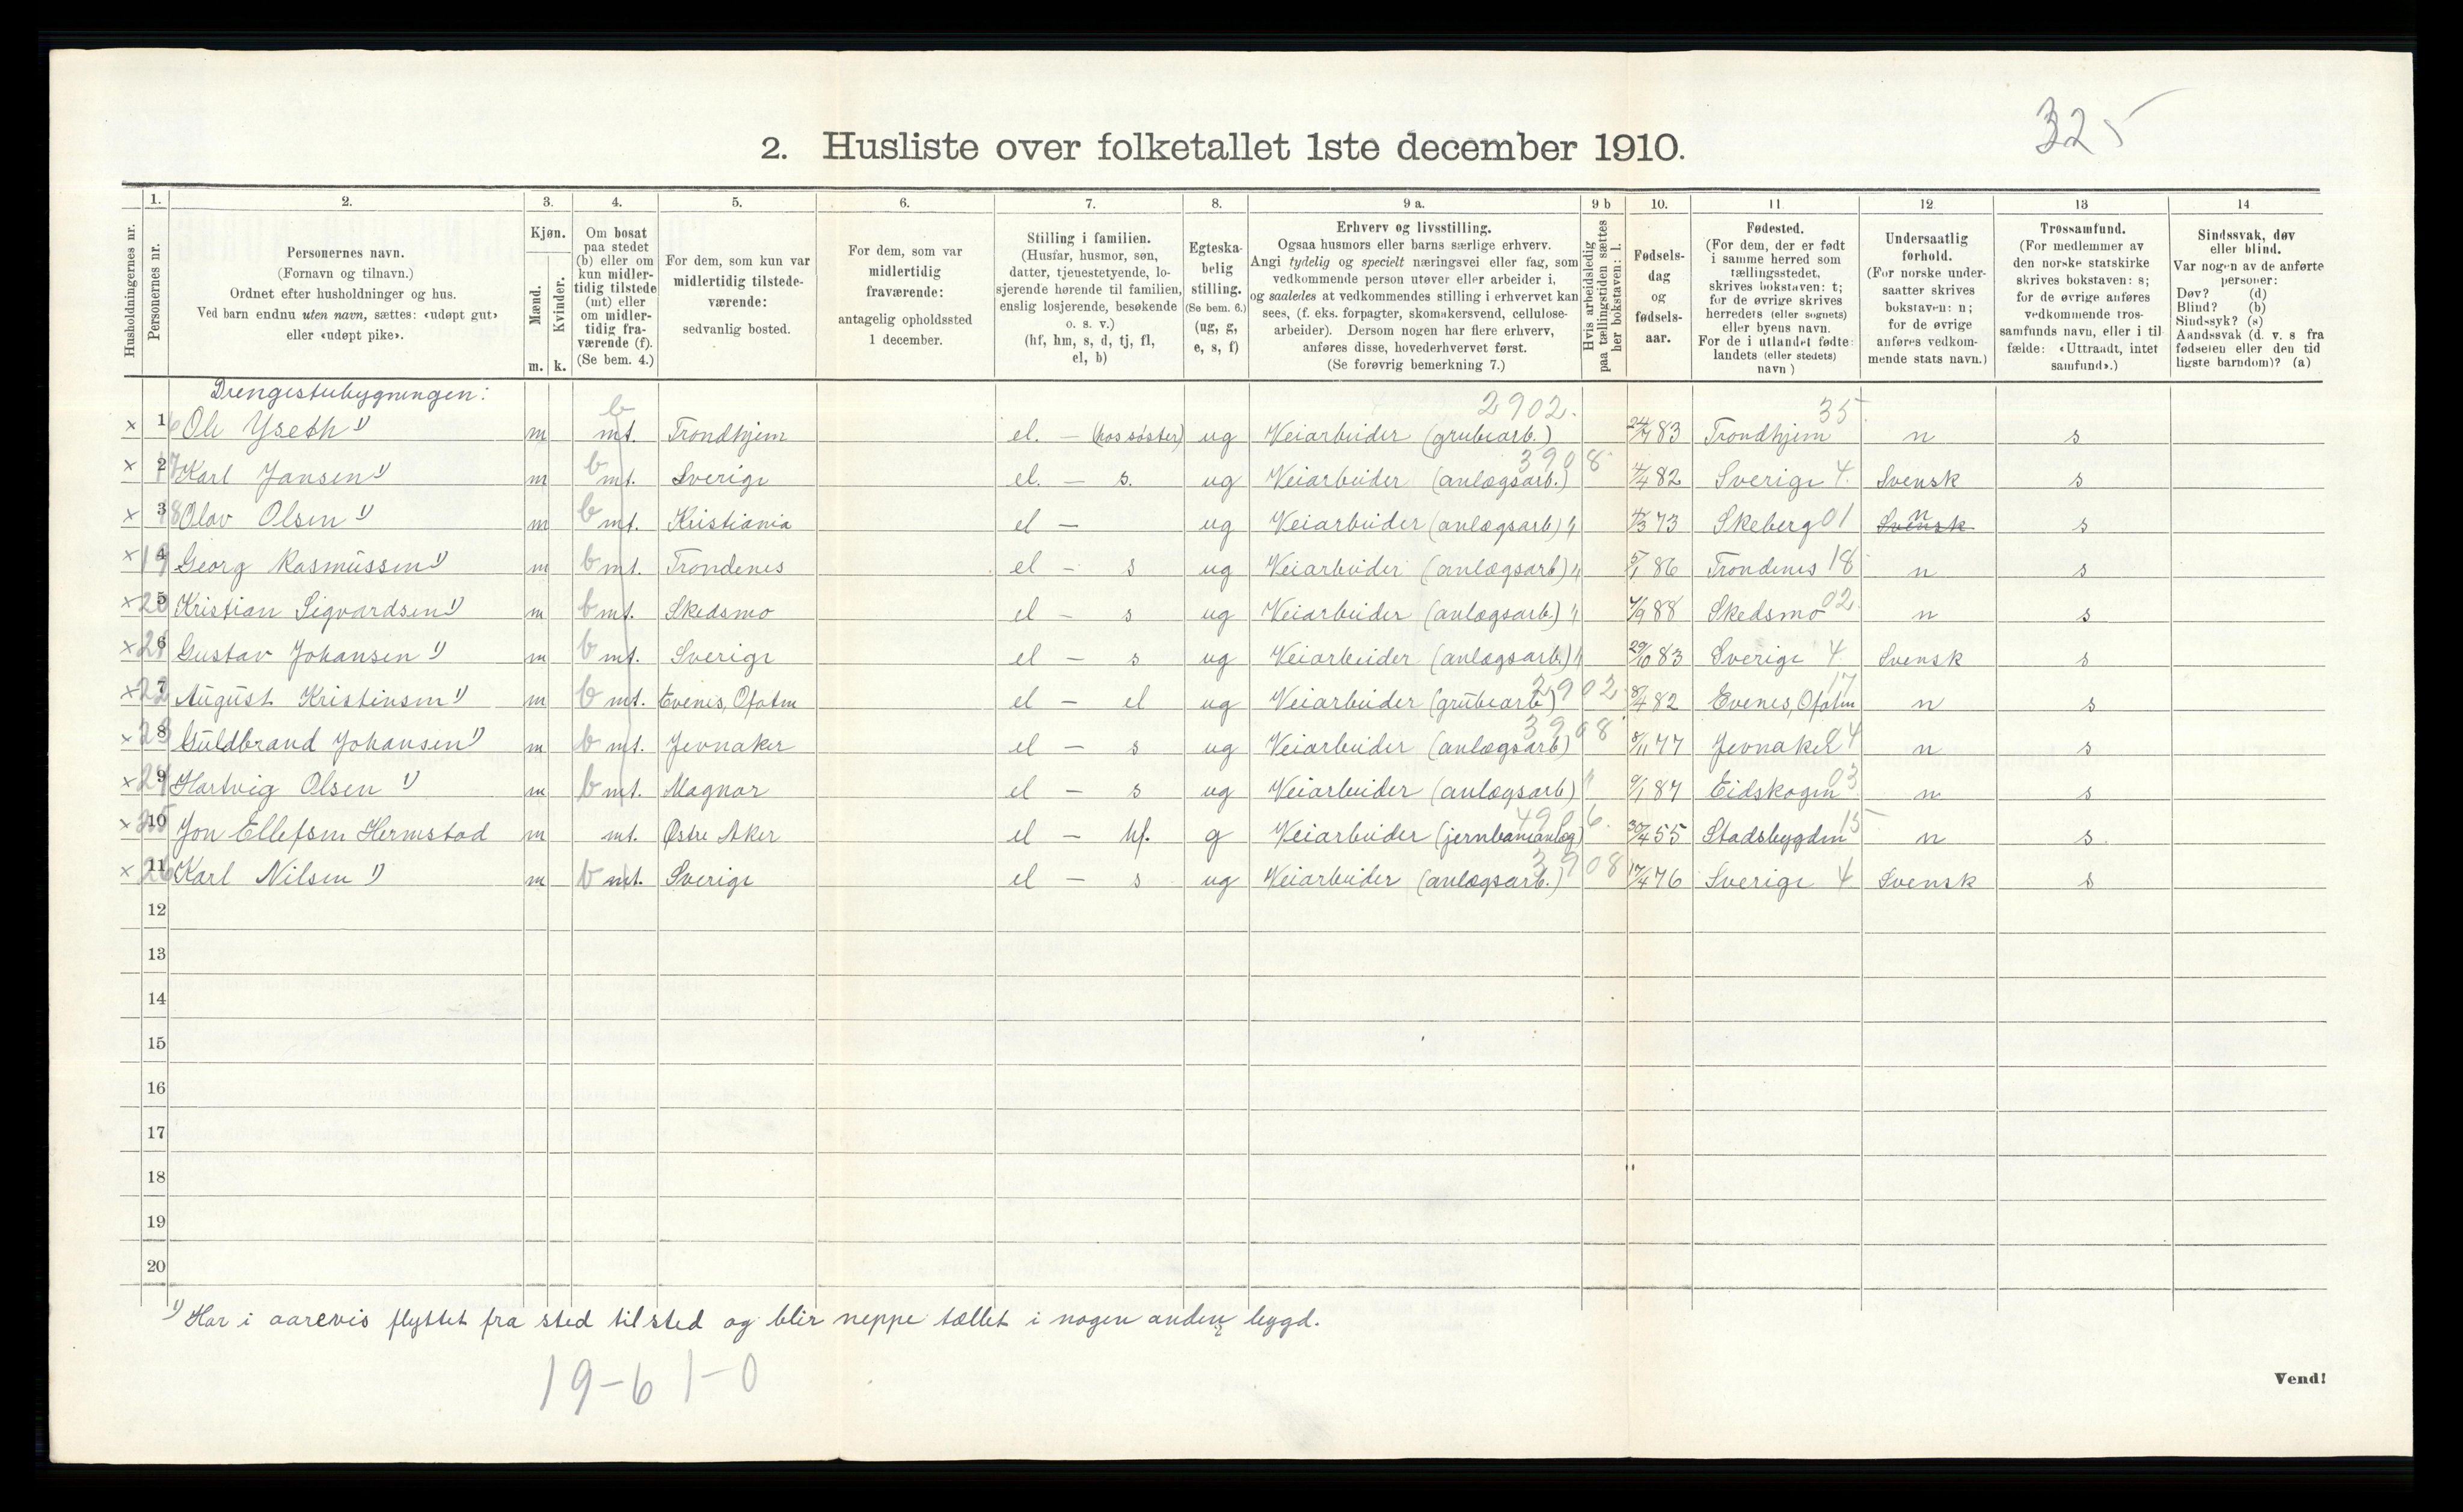 325
2. Husliste over folketallet 1ste december 1910.
1. 2. 3. 4. 5. 6. 7. 8. 9 a. 9 b 10. 11 12 13 14
Husholdningernes nr.
Personernes nr.
Personernes navn.
(Fornavn og tilnavn.)
Ordnet efter husholdninger og hus.
Ved barn endnu uten navn, sættes: «udøpt gut»
eller «udøpt pike».
Kjøn.
Mænd.
Kvinder.
m. k.
Om bosat
paa stedet
(b) eller om
kun midler-
tidig tilstede
(mt) eller
om midler-
tidig fra-
værende (f).
(Se bem. 4.)
For dem, som kun var
midlertidig tilstede-
værende:
sedvanlig bosted.
For dem, som var
midlertidig
fraværende:
antagelig opholdssted
1 december.
Stilling i familien.
(Husfar, husmor, søn,
datter, tjenestetyende, lo-
sjerende hørende til familien,
enslig losjerende, besøkende
o. s. v.)
(hf, hm, s, d, tj, fl,
el, b)
Egteska-
belig
stilling.
(Se bem. 6.)
(ug, g,
e, s, f)
Erhverv og livsstilling.
Ogsaa husmors eller barns særlige erhverv.
Angi tydelig og specielt næringsvei eller fag, som
vedkommende person utøver eller arbeider i,
og saaledes at vedkommendes stilling i erhvervet kan
sees, (f. eks. forpagter, skomakersvend, cellulose-
arbeider). Dersom nogen har flere erhverv,
anføres disse, hovederhvervet først.
(Se forøvrig bemerkning 7.)
Hvis arbeidsledig
paa tællingstiden sættes
her bokstaven: l.
Fødsels-
dag
og
fødsels-
aar.
Fødested.
(For dem, der er født
i samme herred som
tællingsstedet,
skrives bokstaven: t;
for de øvrige skrives
herredets (eller sognets)
eller byens navn.
For de i utlandet fødte:
landets (eller stedets)
navn )
Undersaatlig
forhold.
(For norske under-
saatter skrives
bokstaven: n;
for de øvrige
anføres vedkom-
mende stats navn.)
Trossamfund.
(For medlemmer av
den norske statskirke
skrives bokstaven: s;
for de øvrige anføres
vedkommende tros-
samfunds navn, eller i til
fælde: «Uttraadt, intet
samfund».)
Sindssvak, døv
eller blind.
Var nogen av de anførte
personer:
Døv? (d)
Blind? (b)
Sindssyk? (s)
Aandssvak (d. v. s fra
fødselen eller den tid
ligste barndom)? (a)
Drengestubygningen:
x 1 Ole Yseth 1) m b mt. Trondhjem el. – (hos søster) ug Veiarbeider (grubearb.) 2902. 24/7 83 Trondhjem 35 n s
x 2 17 Karl Jansen 1) m b mt. Sverige el. – s. ug Veiarbeider (anlægsarb.) 3908 4/4 82 Sverige 4. Svensk s
x 3 18 Olav Olsen 1) m b mt. Kristiania el – ug Veiarbeider (anlægsarb) 4/3 73 Skeberg 01 Svensk n s
x 4 19 Georg Rasmussen 1) m b mt. Trondenes el – s ug Veiarbeider (anlægsarb) 5/1 86 Trondenes 18 n s
x 5 20 Kristian Sigvardsen 1) m b mt. Skedsmo el – s ug Veiarbeider (anlægsarb.) 4/9 88 Skedsmo 02 n s
x 6 21 Gustav Johansen 1) m b mt. Sverige el – s ug Veiarbeider (anlægsarb.) 29/10 83 Sverige 4 Svensk s
x 7 22 August Kristinsen 1) m b mt. Evenes, Ofoten el – el ug Veiarbeider (grubearb) 2902 8/4 82 Evenes, Ofoten 17 n s
x 8 23 Guldbrand Johansen 1) m b mt. Jevnaker el – s ug Veiarbeider (anlægsarb) 3908 8/11 77 Jevnaker 04 n s
x 9 24 Hartvig Olsen 1) m b mt. Magnor el – s ug Veiarbeider (anlægsarb) 9/1 87 Eidskogen 03 n s
x 10 25 Jon Ellefsen Hermstad m mt. Østre Aker el – hf. g Veiarbeider (jernbaneanlæg) 4906. 30/4 55 Stadsbygden 15 n s.
x 11 26 Karl Nilsen 1) m b mt. Sverige el – s ug Veiarbeider (anlægsarb.) 3908 17/4 76 Sverige 4 Svensk s
12
13
14
15
16
17
18
19
20
1) Har i aarevis flyttet fra sted til sted og blir neppe tællet i nogen anden bygd.
19-6 1-0
Vend!